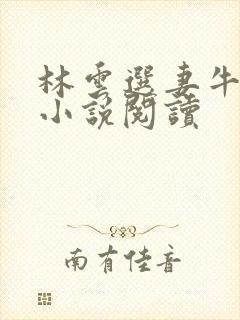 林雲選妻牛
小說閱讀
南有佳音